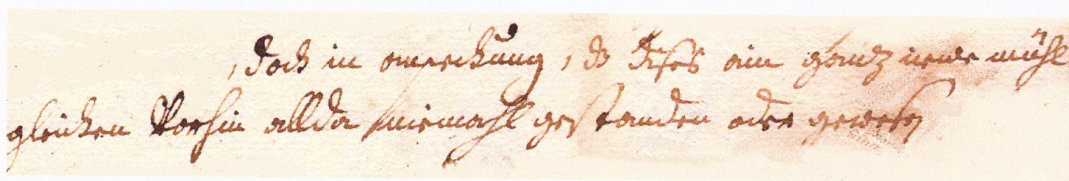 , doch in anmerkhung, dz dises ain gantz neue mühl
gleichen Vorhin allda niemahl gestanden oder gewesen